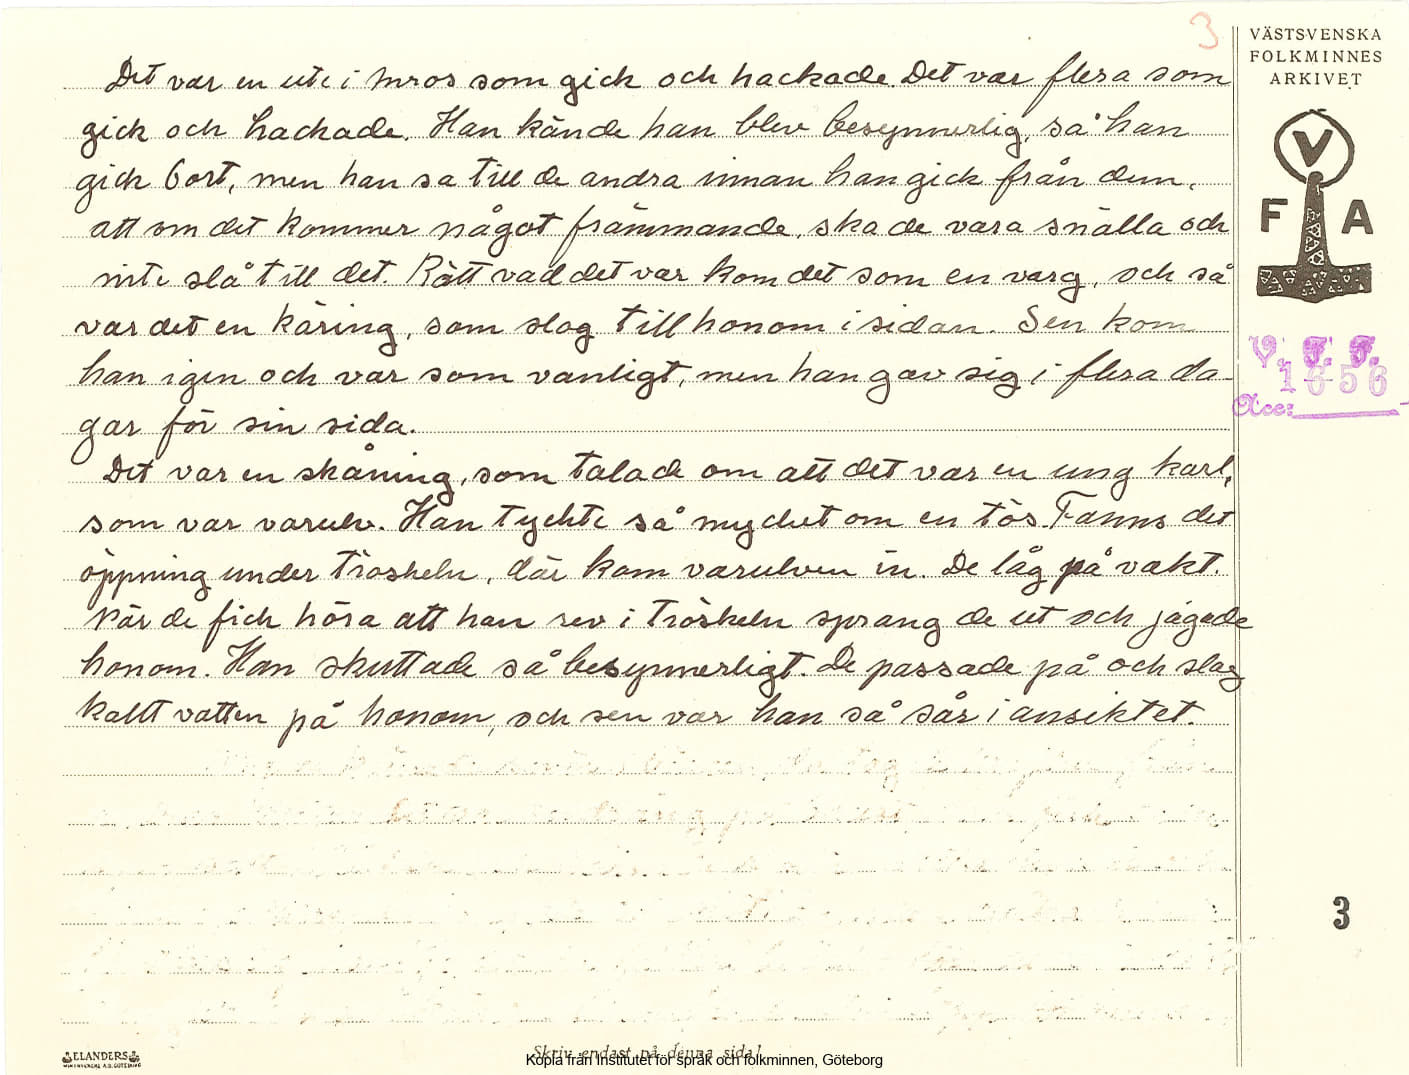 3
VÄSTSVENSKA
FOLKMINNES
ARKIVET
V
F A
V. F. F.
1656
Acc:
Det var en ute i Mros som gick och hackade. Det var flera som
gick och hackade. Han kände han blev besynnerlig, så han
gick bort, men han sa till de andra innan han gick från dem,
att om det kommer något främmande, ska de vara snälla och
inte slå till det. Rätt vad det var kom det som en varg, och så
var det en käring, som slog till honom i sidan. Sen kom
han igen och var som vanligt, men han gav sig i flera da-
gar för sin sida.
Det var en skåning, som talade om att det var en ung karl,
som var varulv. Han tyckte så mycket om en tös. Fanns det
öppning under tröskeln, där kom varulven in. De låg på vakt.
När de fick höra att han rev i tröskeln sprang de ut och jagade
honom. Han skuttade så besynnerligt. De passade på och slog
kallt vatten på honom, och sen var han så sår i ansiktet.
3
ELANDERS
Skriv endast på denna sida!
Kopia från Institutet för språk och folkminnen, Göteborg